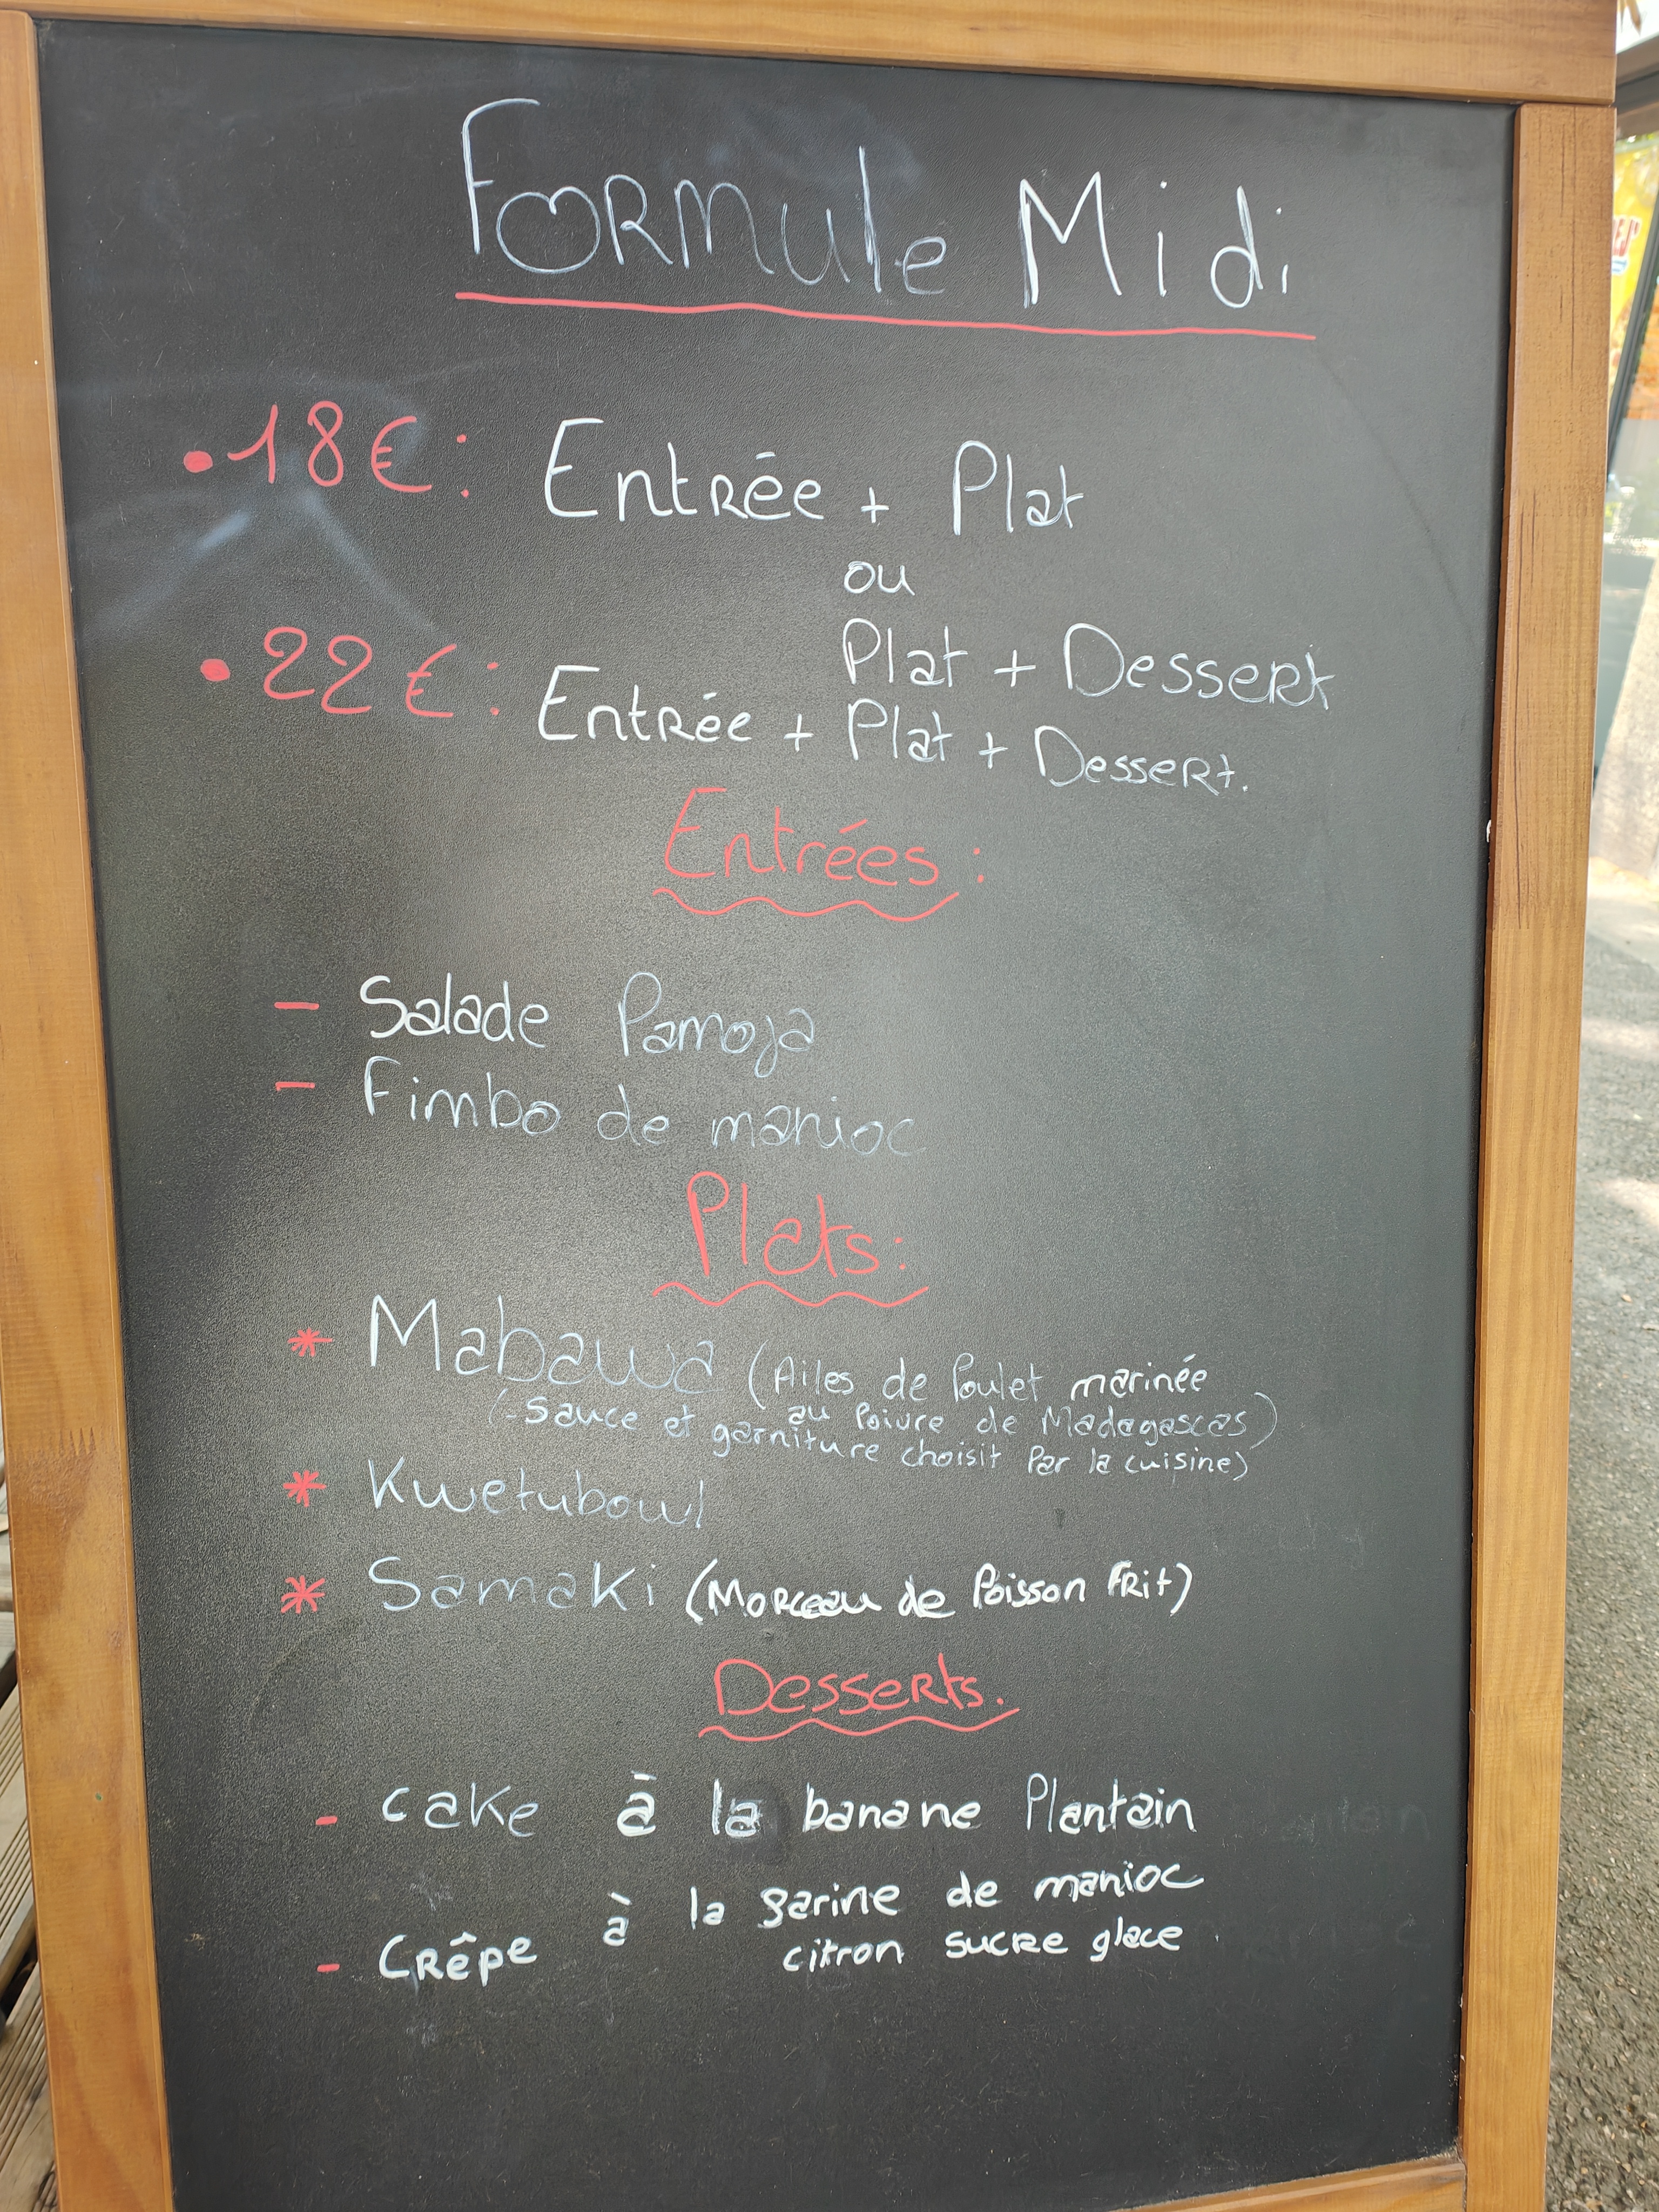 Formule Midi
• 18€ : Entrée + Plat
ou
Plat + Dessert
• 22€ : Entrée + Plat + Dessert.
Entrées :
- Salade Pamoja
- Fimbo de manioc
Plats :
* Mabawa (Ailes de Poulet marinée
au Poivre de Madagascas)
(-Sauce et garniture choisit Par la cuisine)
* Kwetubowl
* Samaki (Morceau de Poisson Frit)
Desserts.
- cake à la banane Plantain
- Crêpe à la farine de manioc
citron sucre glace